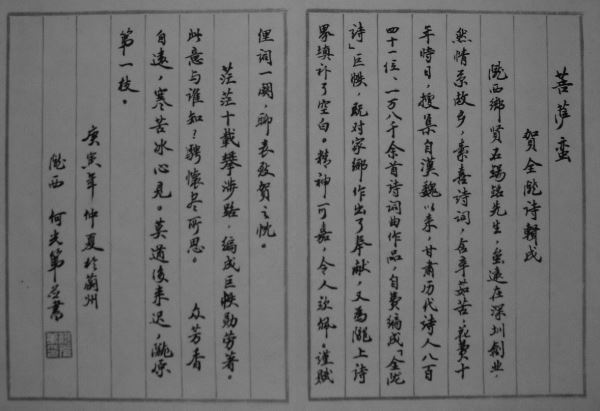 菩萨蛮
贺全陇诗辑成
陇西乡贤石锡铭先生，虽远在深圳创业，
然情系故乡，素喜诗词，含辛茹苦，花费十
年时日，搜集自汉魏以来，甘肃历代诗人八百
四十一位、一万八千余首诗词曲作品，自费编成「全陇
诗」巨帙，既对家乡作出了奉献，又为陇上诗
界填补了空白。精神可嘉，令人钦佩。谨赋
俚词一阕，聊表致贺之忱。
茫茫十载攀涉路，编成巨帙勋劳著。
此意与谁知？骋怀尽所思。 众芳香
自远，寒苦冰心见。莫道后来迟，陇原
第一枝。
庚寅年仲夏于兰州
陇西 何光第并书